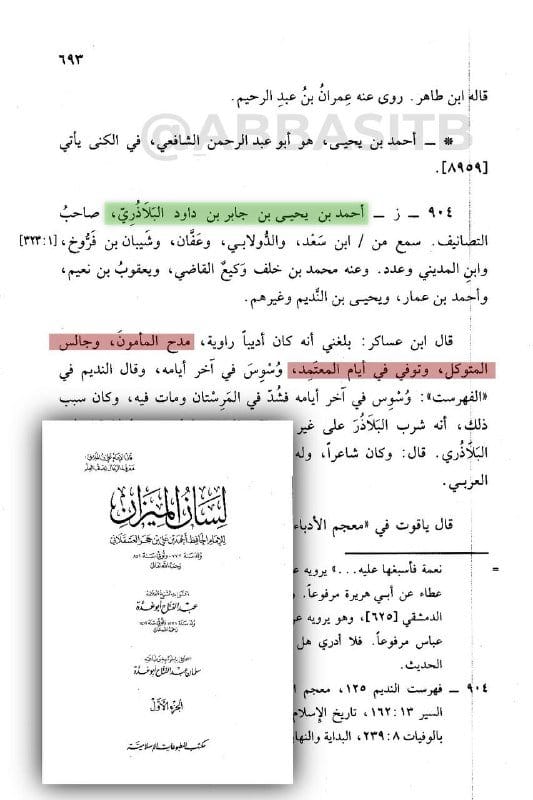 ٦٩٣
قاله ابن طاهر. روى عنه عِمرانُ بنُ عبدِ الرحيم.
@ABBASITB
* ــ أحمد بن يحيـى، هو أبو عبد الرحمن الشافعي، في الكنى يأتي
[٨٩٥٩].
٩٠٤ ــ ز ــ أحمد بن يحيـى بن جابر بن داود البَلَاذُرِيّ، صاحبُ
التصانيف. سمع من / ابن سَعْد، والدُّولابي، وعَفَّان، وشَيبان بن فَرُّوخ، [١:٣٢٣]
وابنِ المديني وعدد. وعنه محمد بن خلف وَكيعٌ القاضي، ويعقوبُ بن نعيم،
وأحمد بن عمار، ويحيـى بن النَّديم وغيرهم.
قال ابن عساكر: بلغني أنه كان أديباً راوية، مدح المأمونَ، وجالس
المتوكل، وتوفي في أيام المعتمِد، وُسْوِسَ في آخر أيامه، وقال النديم في
«الفهرست»: وُسْوِس في آخر أيامه فشُدَّ في المَرِسْتان ومات فيه، وكان سبب
ذلك، أنه شرب البَلَاذُرَ على غير
البَلَاذُري. قال: وكان شاعراً، وله
العربـي.
قال ياقوت في «معجم الأدباء
= نعمة فأسبغها عليه...» يرويه ع
عطاء عن أبـي هريرة مرفوعاً. و
الدمشقي [٦٢٥]، وهو يرويه ع
عباس مرفوعاً. فلا أدري هل
الحديث.
٩٠٤ ــ فهرست النديم ١٢٥، معجم ا
السير ١٣: ١٦٢، تاريخ الإسلام
بالوفيات ٨: ٢٣٩، البداية والنها
لسان الميزان
للإمام الحافظ أحمد بن علي بن حجر العسقلاني
ولد سنة ٧٧٣ وتوفي سنة ٨٥٢
رحمه الله تعالى
عبد الفتاح أبو غدة
رحمه الله تعالى
سلمان عبد الفتاح أبو غدة
الجزء الأول
مكتب المطبوعات الإسلامية